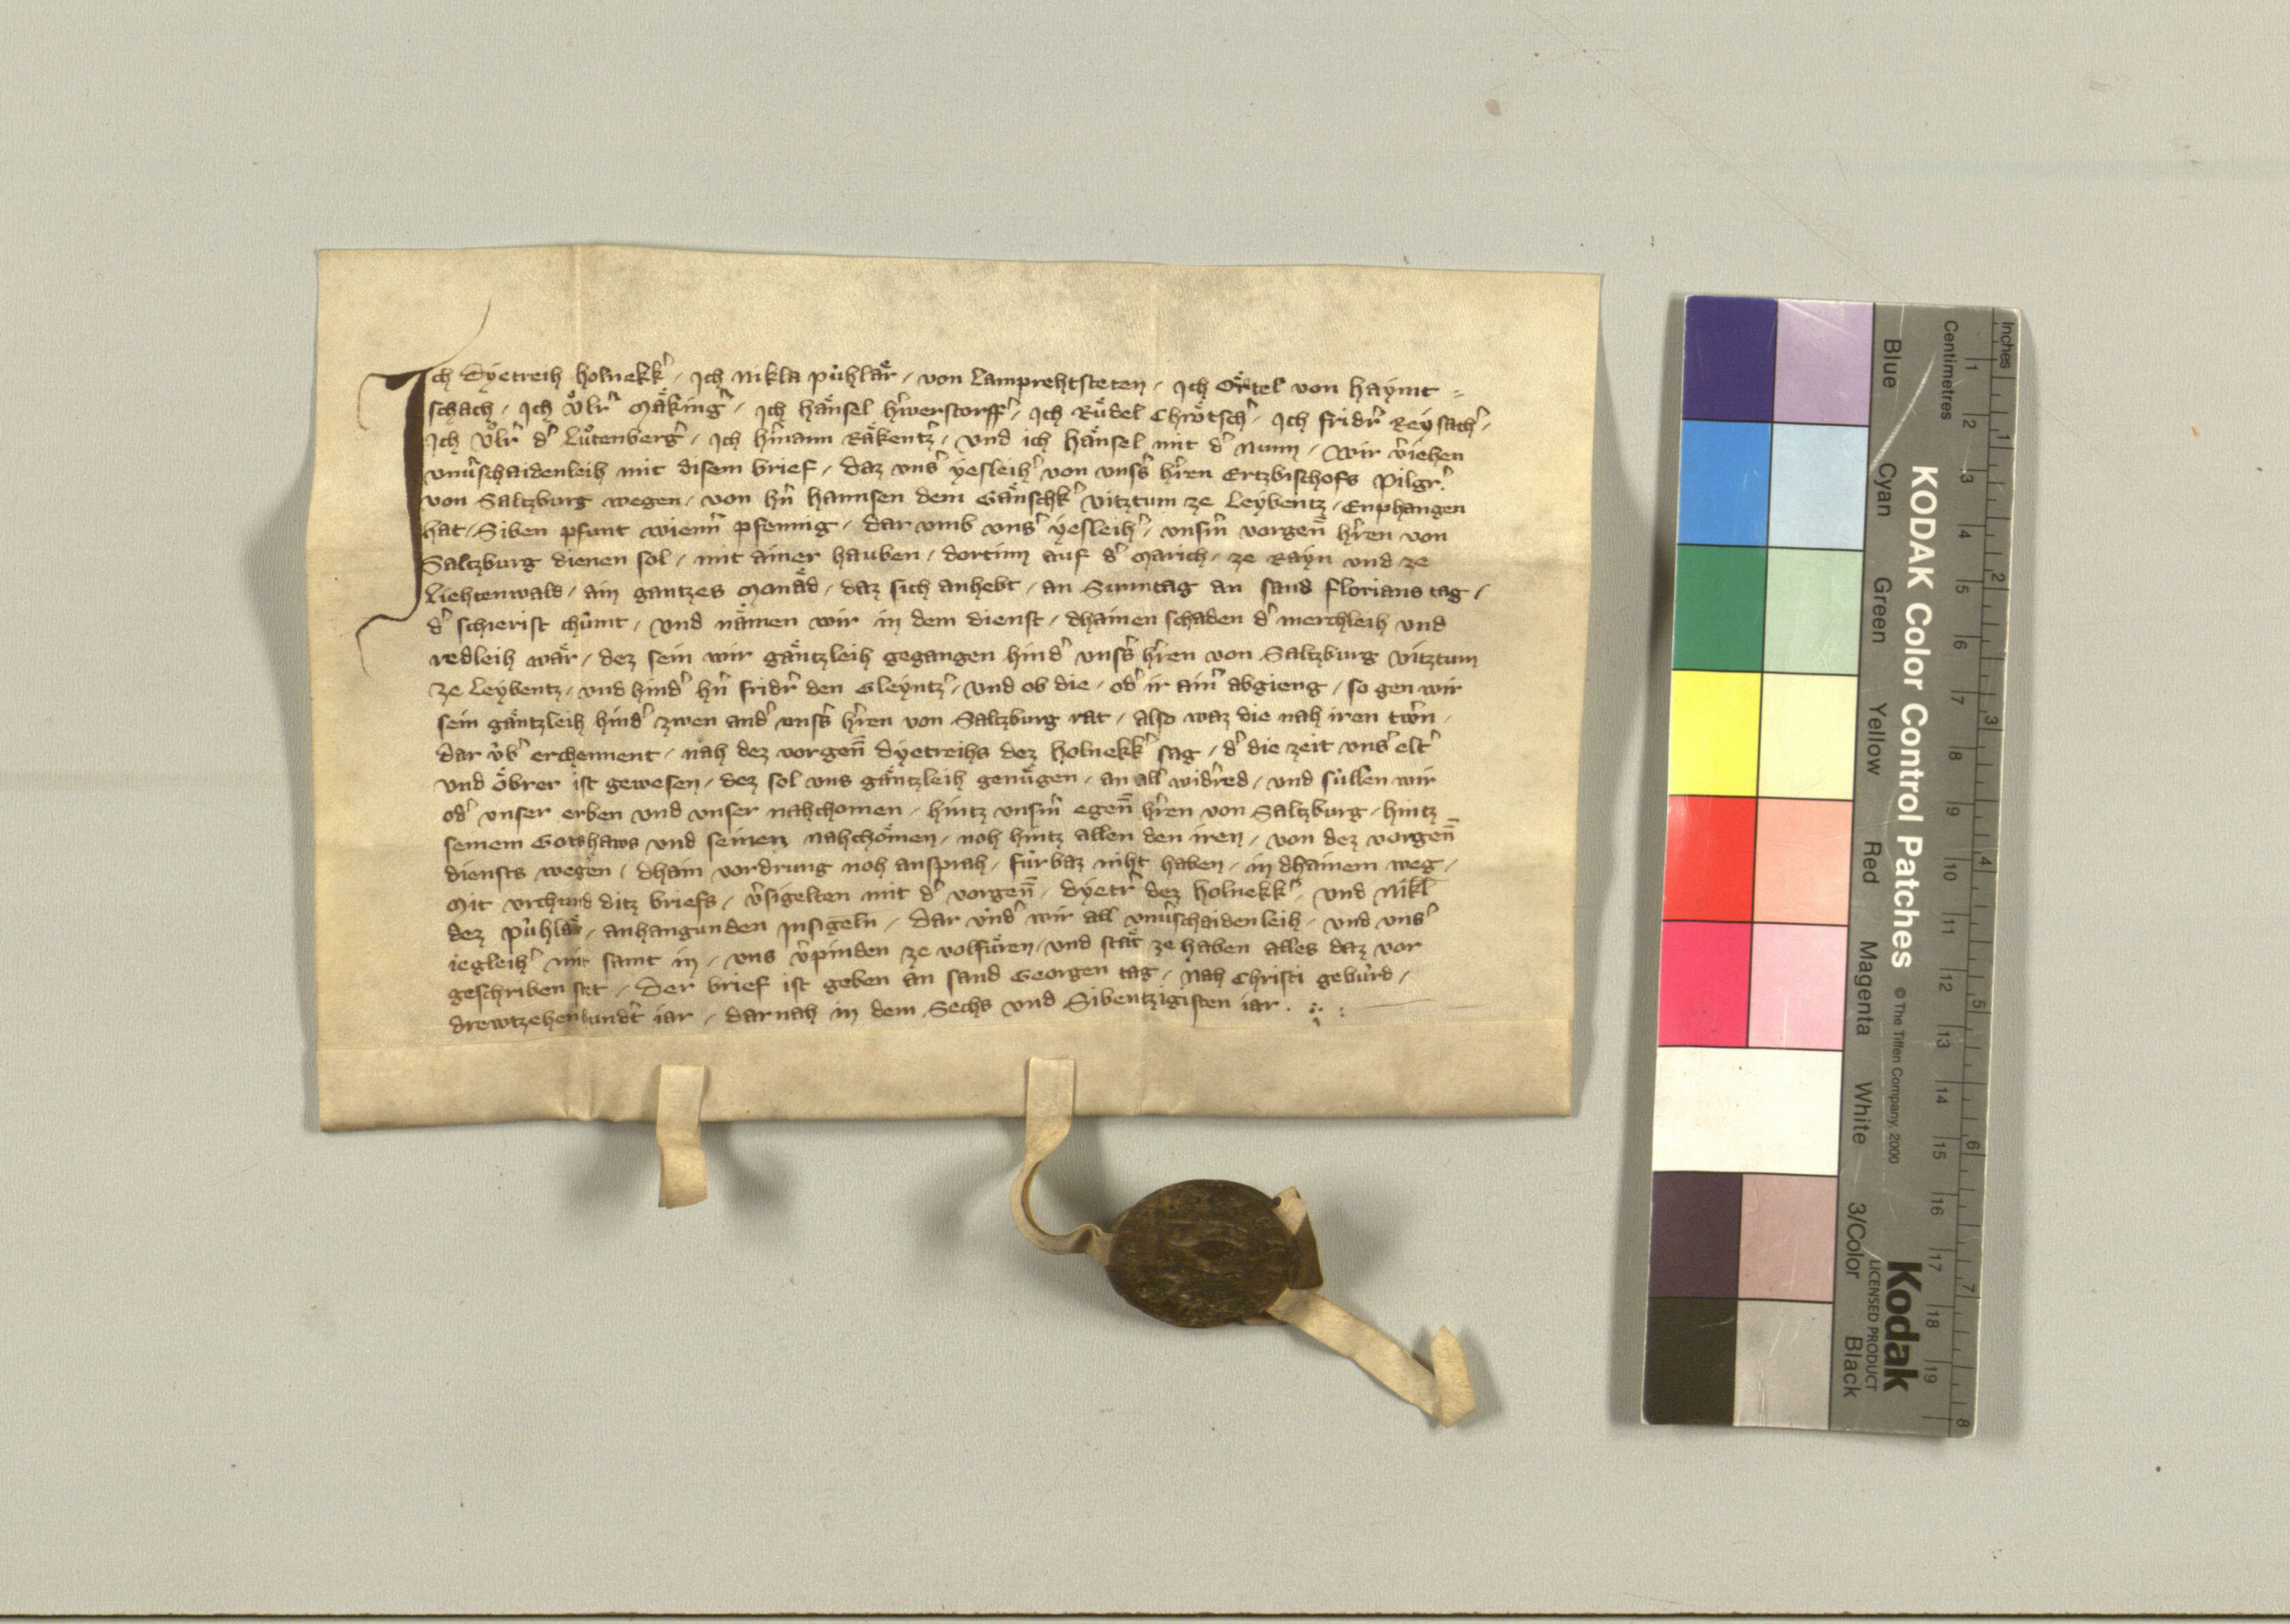 Ich Dyetreih Holnekk͛ / Ich Nikla Pùhlaͤr / von Lamprehtsteten / Ich Oͤrtel von Haymt =
schach / Ich Vͦlr͛ Maͤking͛ / Ich Haͤnsel H͛werstorff͛ / Ich Ruͤdel Chroͤtsch͛ / Ich Fridr͛ Reysach͛ /
Ich Vͦlr͛ d͛ Luͦtenberg͛ / Ich H͛mann Raͤkentz͛ / vnd ich Haͤnsel mit d͛ Nunn / Wir v͛iehen
vnu͛schaidenleih mit disem brief / daz vns͛ yesleih͛ von vnss͛ h͛ren Ertzbischofs Pilgr͛
von Saltzburg wegen / von hn͛ Hannsen dem Gaͤnschk͛ vitztum ze Leybentz / Enphangen
hat / Siben pfunt wienn͛ pfennig / dar vmb vns͛ yesleih͛ / vnsm͛ vorgen̄ h͛ren von
Saltzburg dienen sol / mit ainer hauben / dortinn auf d͛ March / ze Rayn vnd ze
Liehtenwald / ain gantzes Monaͤd / daz sich anhebt / an Sunntag an sand Florians tag /
d͛ schierist chùmt / vnd naͤmen wir in dem dienst / dhainen schaden d͛ merchleih vnd
redleih waͤr / dez sein wir gaͤntzleih gegangen hind͛ vnss͛ h͛ren von Saltzburg vitztum
ze Leybentz / vnd hind͛ hn͛ Fridr͛ den Gleyntz͛ / vnd ob die / od͛ ir ain͛ abgieng / so gen wir
sein gaͤntzleih hind͛ zwen and͛ vnss͛ h͛ren von Saltzburg rat / also waz die nah iren trw͛n /
dar vͤb͛ erchennent / nah dez vorgen̄ Dyetreihs dez Holnekk͛ sag / d͛ die zeit vns͛ elt͛
vnd oͤbrer ist gewesen / dez sol vns gaͤntzleih genuͤgen / an all wid͛red / vnd sùllen wir
od͛ vnser erben vnd vnser nahchomen / hintz vnsm͛ egen̄ h͛ren von Saltzburg / hintz
seinem Gotshaws vnd seinen nahchoͤmen / noh hintz allen den iren / von dez vorgen̄
diensts wegen / dhain vordrung noh ansprah / fùrbaz niht haben / in dhainem weg /
Mit vrchund ditz briefs / v͛sigelten mit d͛ vorgen̄ / Dyetr͛ dez Holnekk͛ / vnd Nikl̄
dez Pùhlaͤr / anhangunden Insigeln / Dar vnd͛ wir all vnu͛schaidenleih / vnd vns͛
iegleih͛ mit samt in / vns v͛pinden ze volfuͤren / vnd staͤt ze haben alles daz vor
geschriben stet / Der brief ist geben an sand Georgen tag / nah Christi gebùrd /
drewtzehenhundt͛ iar / darnah in dem Sechs vnd Sibentzigisten iar .
Inches
1
2
3
4
5
6
7
8
Centimetres
1
2
3
4
5
6
7
8
9
10
11
12
13
14
15
16
17
18
19
KODAK Color Control Patches
© The Tiffen Company, 2000
Kodak
LICENSED PRODUCT
Blue
Cyan
Green
Yellow
Red
Magenta
White
3/Color
Black